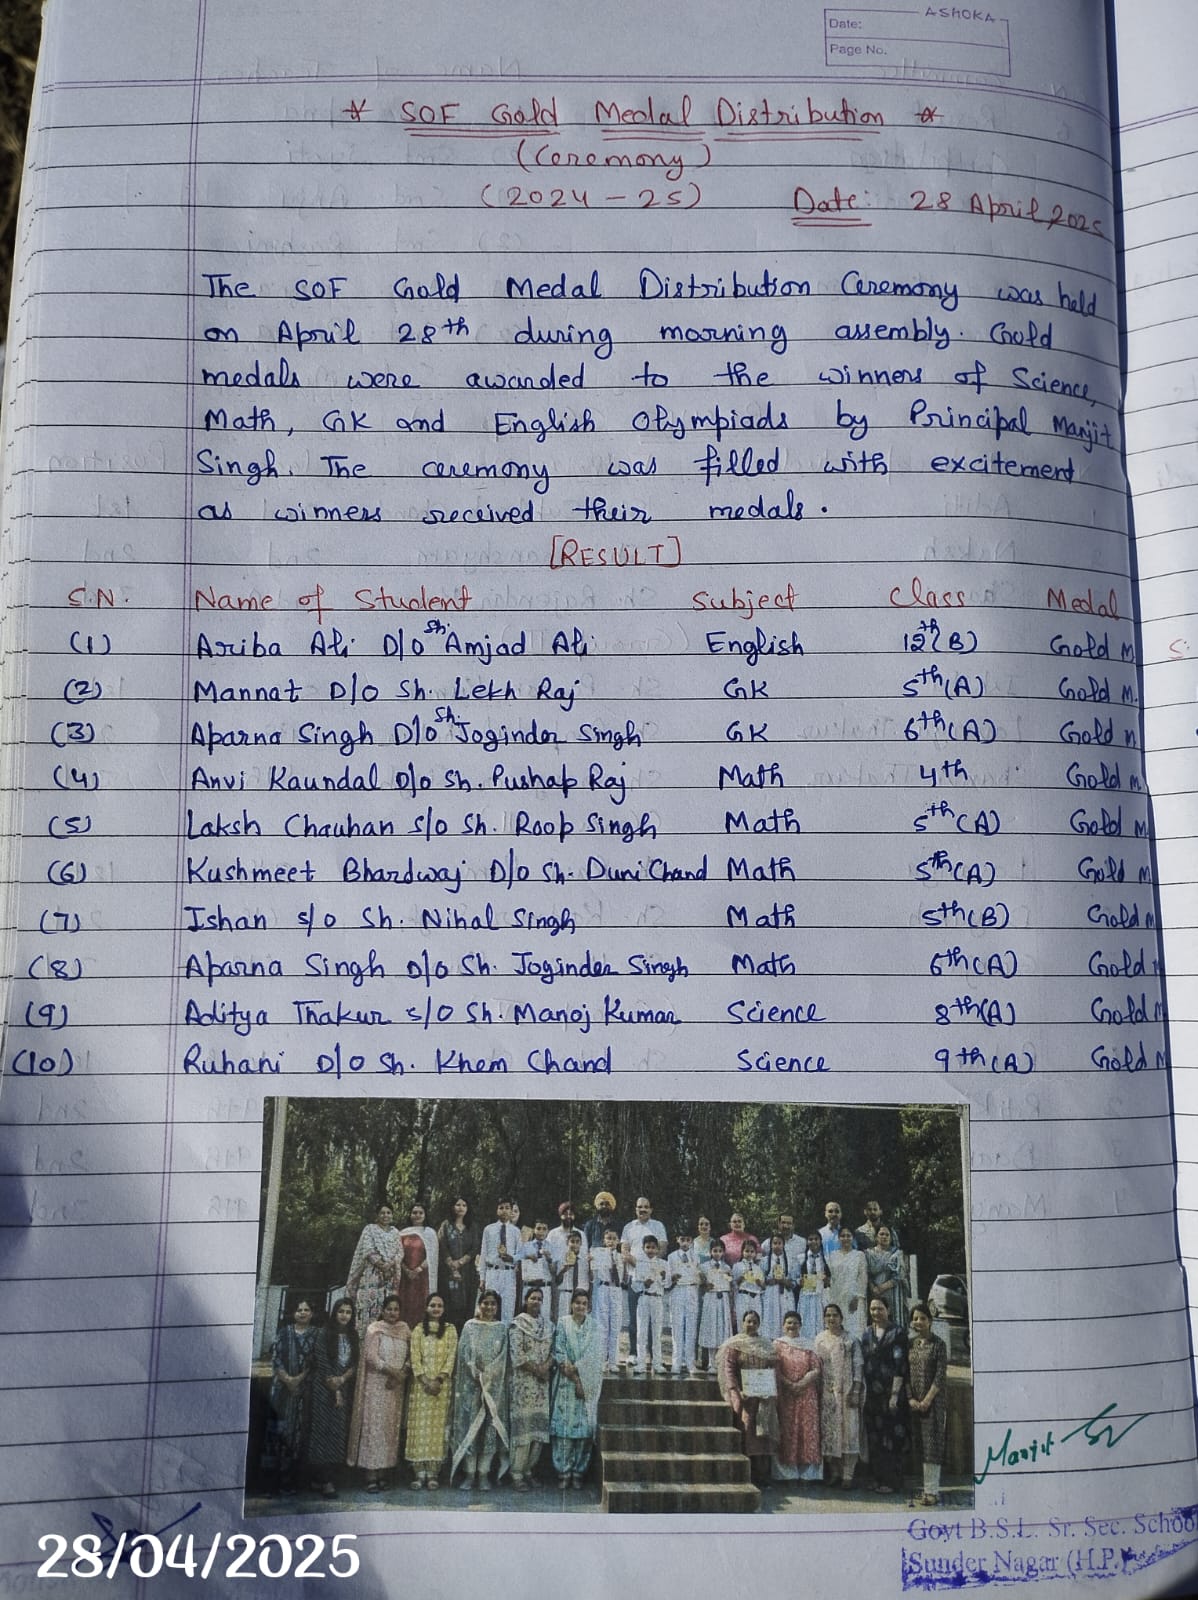 ASHOKA
Date:
Page No.
* SOF Gold Medal Distribution *
(Ceremony)
(2024-25) Date: 28 April 2025
The SOF Gold Medal Distribution Ceremony was held
on April 28th during morning assembly. Gold
medals were awarded to the winners of Science,
Math, GK and English Olympiads by Principal Manjit
Singh. The ceremony was filled with excitement
as winners received their medals.
[RESULT]
S.N. Name of Student Subject Class Medal
(1) Ariba Ali D/o Sh. Amjad Ali English 12th(B) Gold M.
(2) Mannat D/o Sh. Lekh Raj GK 5th(A) Gold M.
(3) Aparna Singh D/o Sh. Joginder Singh GK 6th(A) Gold M
(4) Anvi Kaundal D/o Sh. Pushap Raj Math 4th Gold M
(5) Laksh Chauhan s/o Sh. Roop Singh Math 5th(A) Gold M
(6) Kushmeet Bhardwaj D/o Sh. Duni Chand Math 5th(A) Gold M
(7) Ishan s/o Sh. Nihal Singh Math 5th(B) Gold M
(8) Aparna Singh D/o Sh. Joginder Singh Math 6th(A) Gold
(9) Aditya Thakur s/o Sh. Manoj Kumar Science 8th(A) Gold M
(10) Ruhani D/o Sh. Khem Chand Science 9th(A) Gold M
Manjit
Govt B.S.L. Sr. Sec. School
Sunder Nagar (H.P.)
28/04/2025